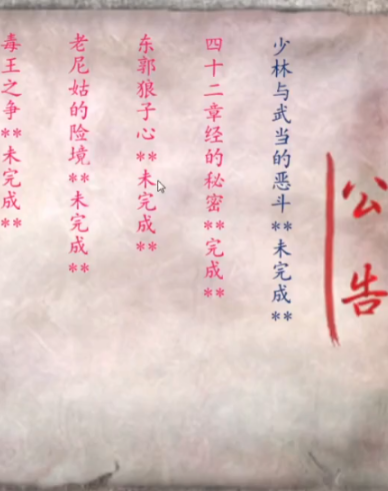 公告
少林与武当的恶斗**未完成**
四十二章经的秘密**完成**
东郭狼子心**未完成**
老尼姑的险境**未完成**
毒王之争**未完成**